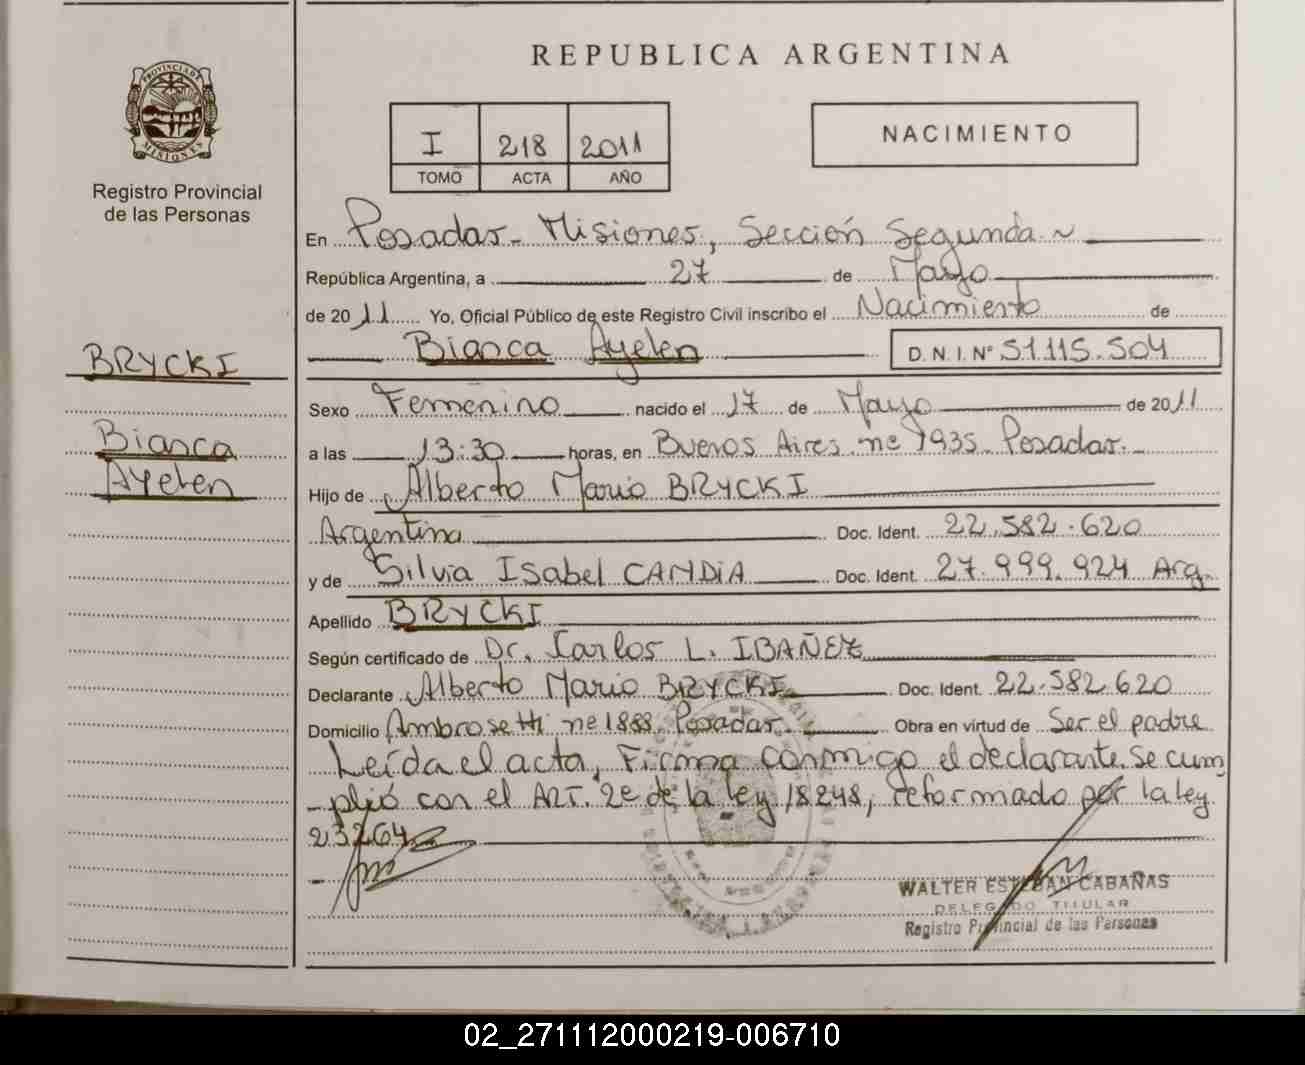 REPUBLICA ARGENTINA
PROVINCIA DE MISIONES
Registro Provincial
de las Personas
I 218 2011
TOMO ACTA AÑO
NACIMIENTO
BRYCKI
Bianca
Ayelen
En Posadas - Misiones, Sección Segunda ~
República Argentina, a 27 de Mayo
de 2011 Yo, Oficial Público de este Registro Civil inscribo el Nacimiento de
Bianca Ayelen D.N.I. Nº 51.115.504
Sexo Femenino nacido el 17 de Mayo de 2011
a las 13:30 horas, en Buenos Aires ne 1935 Posadas.
Hijo de Alberto Mario BRYCKI
Argentina Doc. Ident. 22.582.620
y de Silvia Isabel CANDIA Doc. Ident. 27.999.924 Arg.
Apellido BRYCKI
Según certificado de Dr. Carlos L. IBAÑEZ
Declarante Alberto Mario BRYCKI Doc. Ident. 22.582.620
Domicilio Ambrosetti ne 1888 Posadas Obra en virtud de Ser el padre
Leída el acta, Firma conmigo el declarante. Se cum
-plió con el ART. 2e de la ley 18248, reformado por la ley
23264
WALTER ESTEBAN CABAÑAS
DELEGADO TITULAR
Registro Provincial de las Personas
02_271112000219-006710